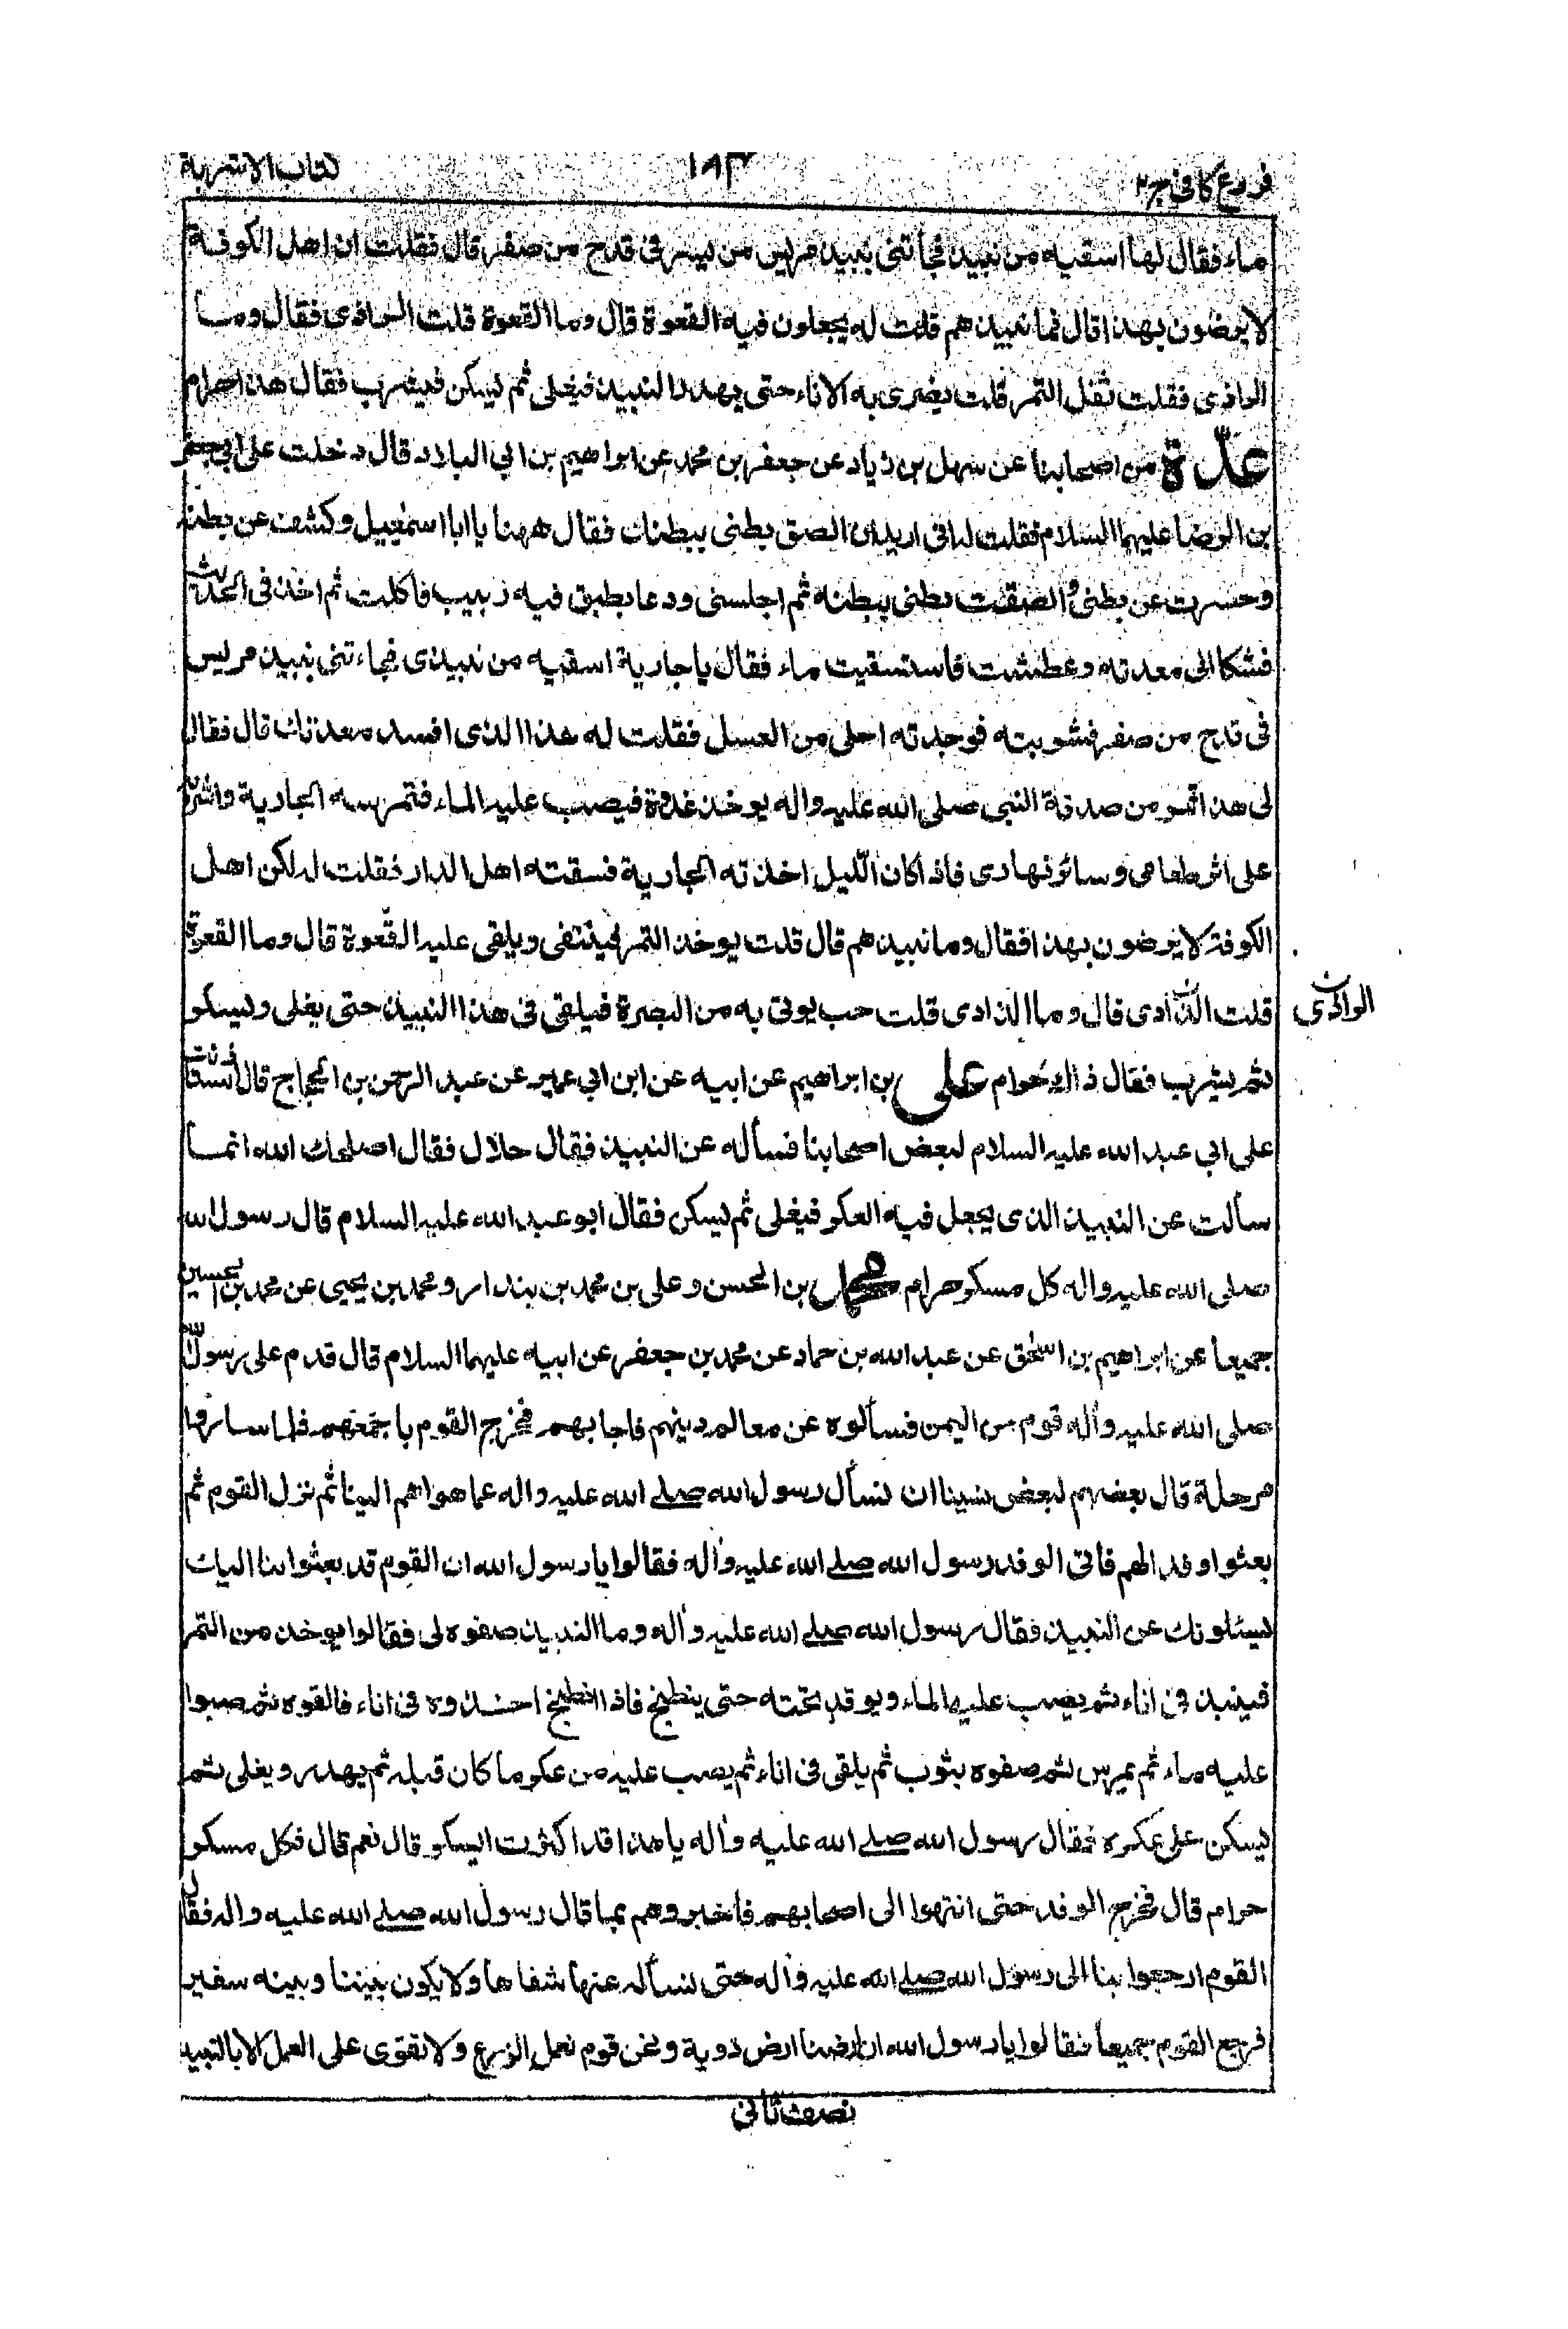 فروع كافى ج۲
۱۸۳
كتاب الاشربة
ماء فقال لها اسقيه من نبيذ فجأتنى بنبيذ مريس من بسر فى قدح من صفر قال فقلت ان اهل الكوفة
لا يرضون بهذا قال فما نبيذهم قلت له يجعلون فيه القعوة قال وما القعوة قلت الحاذى فقال وما
الحاذى فقلت ثفل التمر قلت يضرى به الاناء حتى يهدر النبيذ فيغلى ثم يسكن فيشرب فقال هذا حرام
عدّة من اصحابنا عن سهل بن زياد عن جعفر بن محمد عن ابراهيم بن ابى البلاد قال دخلت على ابى جعفر
بن الرضا عليهما السلام فقلت له انى اريد ان الصق بطنى ببطنك فقال ههنا يا ابا اسمعيل وكشف عن بطنه
وحسرت عن بطنى والصقت بطنى ببطنه ثم اجلسنى ودعا بطبق فيه زبيب فاكلت ثم اخذ فى الحديث
فشكا الى معدته وعطشت فاستسقيت ماء فقال يا جارية اسقيه من نبيذى فجاءتنى بنبيذ مريس
فى قدح من صفر فشربته فوجدته احلى من العسل فقلت له هذا الذى افسد معدتك قال فقال
لى هذا تمر من صدقة النبى صلى الله عليه واله يوخذ غدوة فيصب عليه الماء فتمرسه الجارية واشربه
على اثر طعامى وسائر نهارى فاذا كان الليل اخذته الجارية فسقته اهل الدار فقلت له لكن اهل
الكوفة لا يرضون بهذا فقال وما نبيذهم قال قلت يوخذ التمر فينقى ويلقى عليه القعوة قال وما القعوة
قلت الداذى قال وما الداذى قلت حب يوتى به من البصرة فيلقى فى هذا النبيذ حتى يغلى ويسكر
ثم يشرب فقال ذاك حرام على بن ابراهيم عن ابيه عن ابن ابى عمير عن عبد الرحمن بن الحجاج قال استأذنت
على ابى عبد الله عليه السلام لبعض اصحابنا فسأله عن النبيذ فقال حلال فقال اصلحك الله انما
سألت عن النبيذ الذى يجعل فيه العكر فيغلى ثم يسكن فقال ابو عبد الله عليه السلام قال رسول الله
صلى الله عليه واله كل مسكر حرام محمد بن الحسن وعلى بن محمد بن بندار ومحمد بن يحيى عن محمد بن الحسين
جميعا عن ابراهيم بن اسحق عن عبد الله بن حماد عن محمد بن جعفر عن ابيه عليهما السلام قال قدم على رسول الله
صلى الله عليه وأله قوم من اليمن فسألوه عن معالم دينهم فاجابهم فخرج القوم باجمعهم فلما ساروا
مرحلة قال بعضهم لبعض نسينا ان نسأل رسول الله صلے الله عليه واله عما هو اهم الينا ثم نزل القوم ثم
بعثوا وفدا لهم فاتى الوفد رسول الله صلے الله عليه وأله فقالوا يا رسول الله ان القوم قد بعثوا بنا اليك
يسئلونك عن النبيذ فقال رسول الله صلے الله عليه وأله وما النبيذ صفوه لى فقالوا يوخذ من التمر
فينبذ فى اناء ثم يصب عليه الماء ويوقد تحته حتى ينطبخ فاذا انطبخ اخذوه فى اناء فالقوه ثم صبوا
عليه ماء ثم يمرس ثم صفوه بثوب ثم يلقى فى اناء ثم يصب عليه من عكر ما كان قبله ثم يهدر ويغلى ثم
يسكن على عكره فقال رسول الله صلے الله عليه وأله يا هذا قد اكثرت ايسكر قال نعم قال فكل مسكر
حرام قال فخرج الوفد حتى انتهوا الى اصحابهم فاخبروهم بما قال رسول الله صلے الله عليه واله فقال
القوم ارجعوا بنا الى رسول الله صلے الله عليه وأله حتى نسأله عنها شفاها ولا يكون بيننا وبينه سفير
فرجع القوم جميعا فقالوا يا رسول الله ان ارضنا ارض دوية ونحن قوم نعمل الزرع ولا نقوى على العمل الا بالنبيذ
نصف ثانى